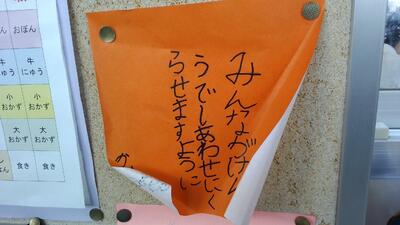 みんながけん
うでしあわせにく
らせますように
か
おぼん
牛
にゅう
牛
にゅう
小
おかず
小
おかず
大
おかず
大
おかず
食き
食き